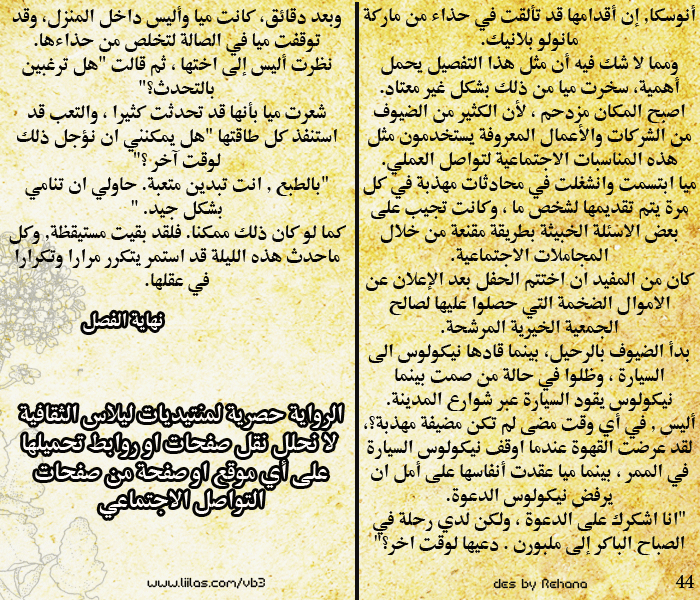 أنوسكا, إن أقدامها قد تألقت في حذاء من ماركة
مانولو بلانيك.
ومما لا شك فيه أن مثل هذا التفصيل يحمل
أهمية، سخرت ميا من ذلك بشكل غير معتاد.
اصبح المكان مزدحم ، لأن الكثير من الضيوف
من الشركات والأعمال المعروفة يستخدمون مثل
هذه المناسبات الاجتماعية لتواصل العملي.
ميا ابتسمت وانشغلت في محادثات مهذبة في كل
مرة يتم تقديمها لشخص ما ، وكانت تجيب على
بعض الاسئلة الخبيثة بطريقة مقنعة من خلال
المجاملات الاجتماعية.
كان من المفيد ان اختتم الحفل بعد الإعلان عن
الاموال الضخمة التي حصلوا عليها لصالح
الجمعية الخيرية المرشحة.
بدأ الضيوف بالرحيل، بينما قادها نيكولوس الى
السيارة ، وظلوا في حالة من صمت بينما
نيكولوس يقود السيارة عبر شوارع المدينة.
أليس , في أي وقت مضى لم تكن مضيفة مهذبة؟،
لقد عرضت القهوة عندما اوقف نيكولوس السيارة
في الممر ، بينما ميا عقدت أنفاسها على أمل ان
يرفض نيكولوس الدعوة.
"انا اشكرك على الدعوة ، ولكن لدي رحلة في
الصباح الباكر إلى ملبورن . دعيها لوقت اخر؟"
des by Rehana
44
وبعد دقائق، كانت ميا وأليس داخل المنزل، وقد
توقفت ميا في الصالة لتخلص من حذاءها.
نظرت أليس إلى اختها ، ثم قالت "هل ترغبين
بالتحدث؟"
شعرت ميا بأنها قد تحدثت كثيرا ، والتعب قد
استنفذ كل طاقتها "هل يمكنني ان نؤجل ذلك
لوقت آخر ؟"
"بالطبع , انت تبدين متعبة. حاولي ان تنامي
بشكل جيد. "
كما لو كان ذلك ممكنا. فلقد بقيت مستيقظة, وكل
ماحدث هذه الليلة قد استمر يتكرر مرارا وتكرارا
في عقلها.
نهاية الفصل
الرواية حصرية لمنتديات ليلاس الثقافية
لا نحلل نقل صفحات او روابط تحميلها
على أي موقع او صفحة من صفحات
التواصل الاجتماعي
www.liilas.com/vb3